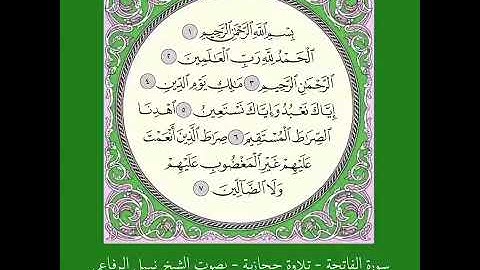 بِسْمِ ٱللَّهِ ٱلرَّحْمَٰنِ ٱلرَّحِيمِ ١
ٱلْحَمْدُ لِلَّهِ رَبِّ ٱلْعَٰلَمِينَ ٢
ٱلرَّحْمَٰنِ ٱلرَّحِيمِ ٣ مَٰلِكِ يَوْمِ ٱلدِّينِ ٤
إِيَّاكَ نَعْبُدُ وَإِيَّاكَ نَسْتَعِينُ ٥ ٱهْدِنَا
ٱلصِّرَٰطَ ٱلْمُسْتَقِيمَ ٦ صِرَٰطَ ٱلَّذِينَ أَنْعَمْتَ
عَلَيْهِمْ غَيْرِ ٱلْمَغْضُوبِ عَلَيْهِمْ
وَلَا ٱلضَّآلِّينَ ٧
سورة الفاتحة - تلاوة حجازية - بصوت الشيخ نبيل الرفاعي